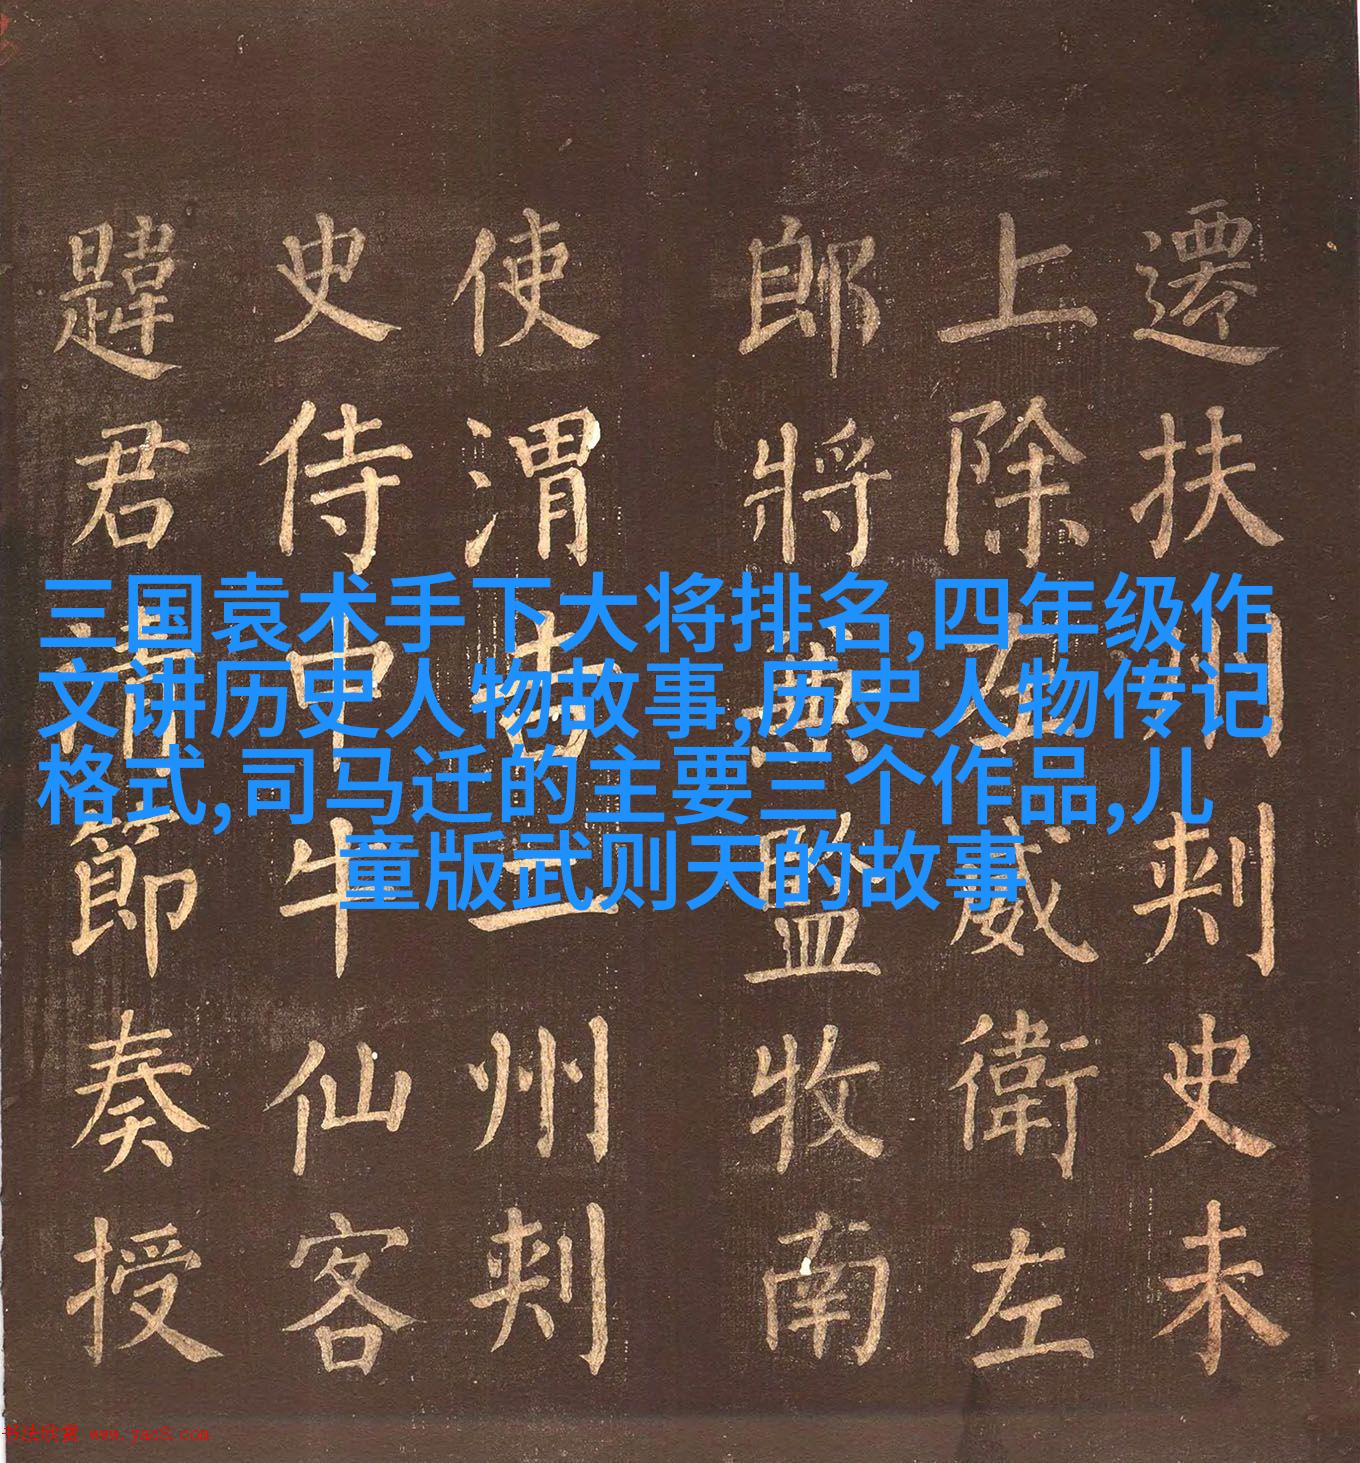 遷扶州刺史未
上除左威衛左
郎將兼監牧南
使渭吉二州刺
史侍中牛仙客
韙君清節奏授
三国袁术手下大将排名,四年级作
文讲历史人物故事,历史人物传记
格式,司马迁的主要三个作品,儿
童版武则天的故事
书法欣赏 www.yac8.com